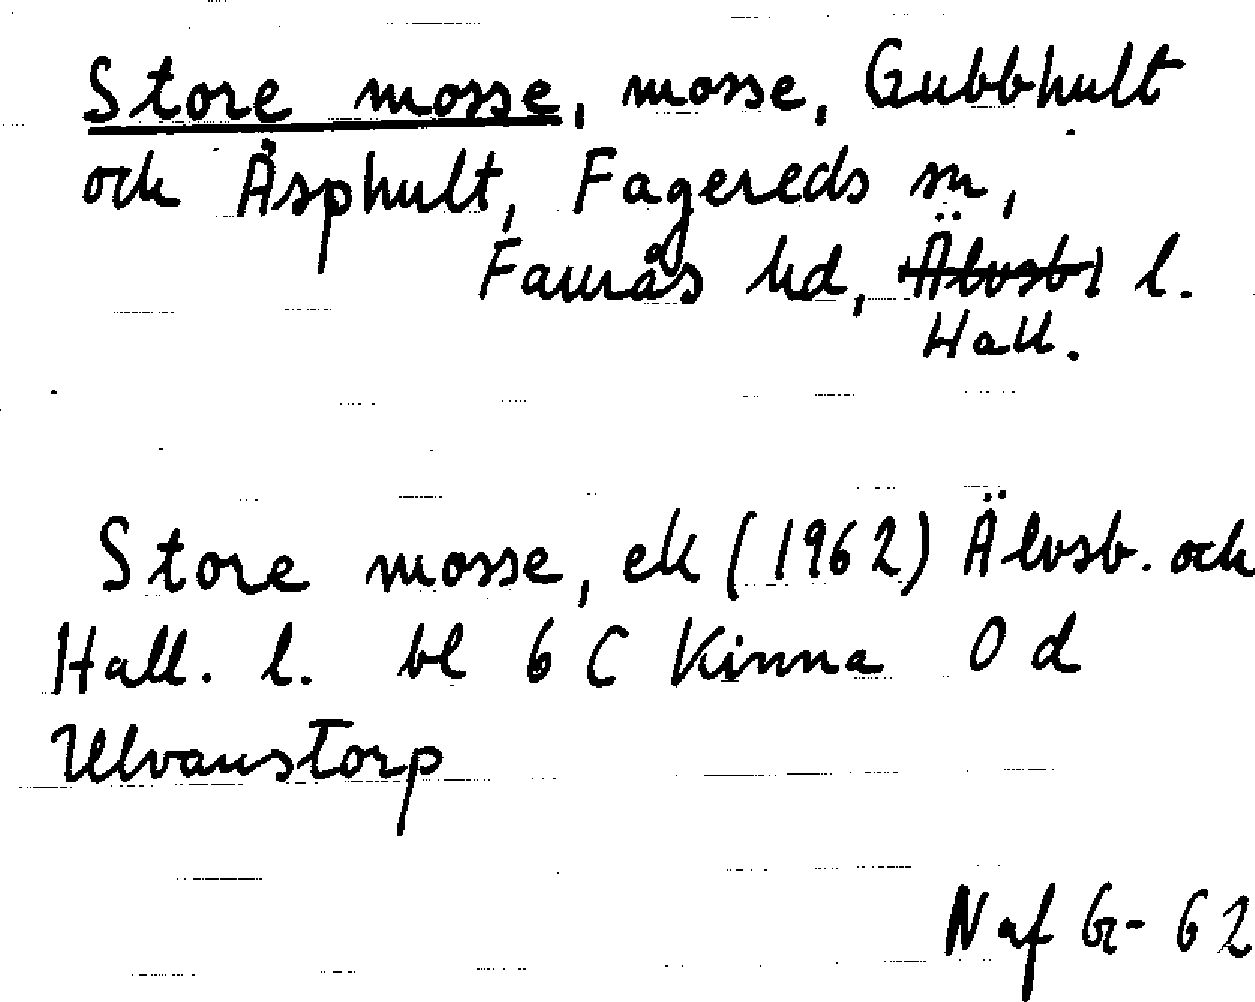 Store mosse, mosse, Gubbhult
och Äsphult, Fagereds sn,
Faurås hd, Älvsb l.
Hall.
Store mosse, ek (1962) Älvsb. och
Hall. l. bl 6 C Kinna 0 d
Ulvanstorp
Naf Gr- 62